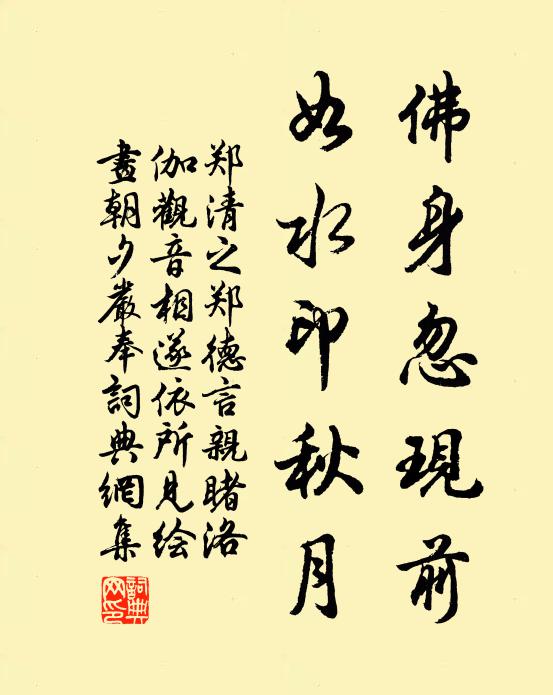 佛身忽現前
如水印秋月
郑清之郑德言親睹洛
伽觀音相遂依所見绘
晝朝夕嚴奉詞典網集
詞典網印